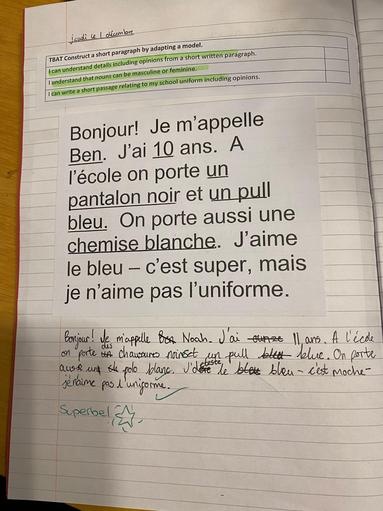 jeudi le 1 décembre
TBAT Construct a short paragraph by adapting a model.
I can understand details including opinions from a short written paragraph.
I understand that nouns can be masculine or feminine.
I can write a short passage relating to my school uniform including opinions.
Bonjour! Je m'appelle
Ben. J'ai 10 ans. A
l'école on porte un
pantalon noir et un pull
bleu. On porte aussi une
chemise blanche. J'aime
le bleu – c'est super, mais
je n'aime pas l'uniforme.
Bonjour! Je m'appelle Noah. J'ai 11 ans. A l'école
on porte des chaussures noirs et un pull blue. On porte
aussi un polo blanc. J'déteste le bleu - c'est moche -
je n'aime pas l'uniforme.
Superbe!